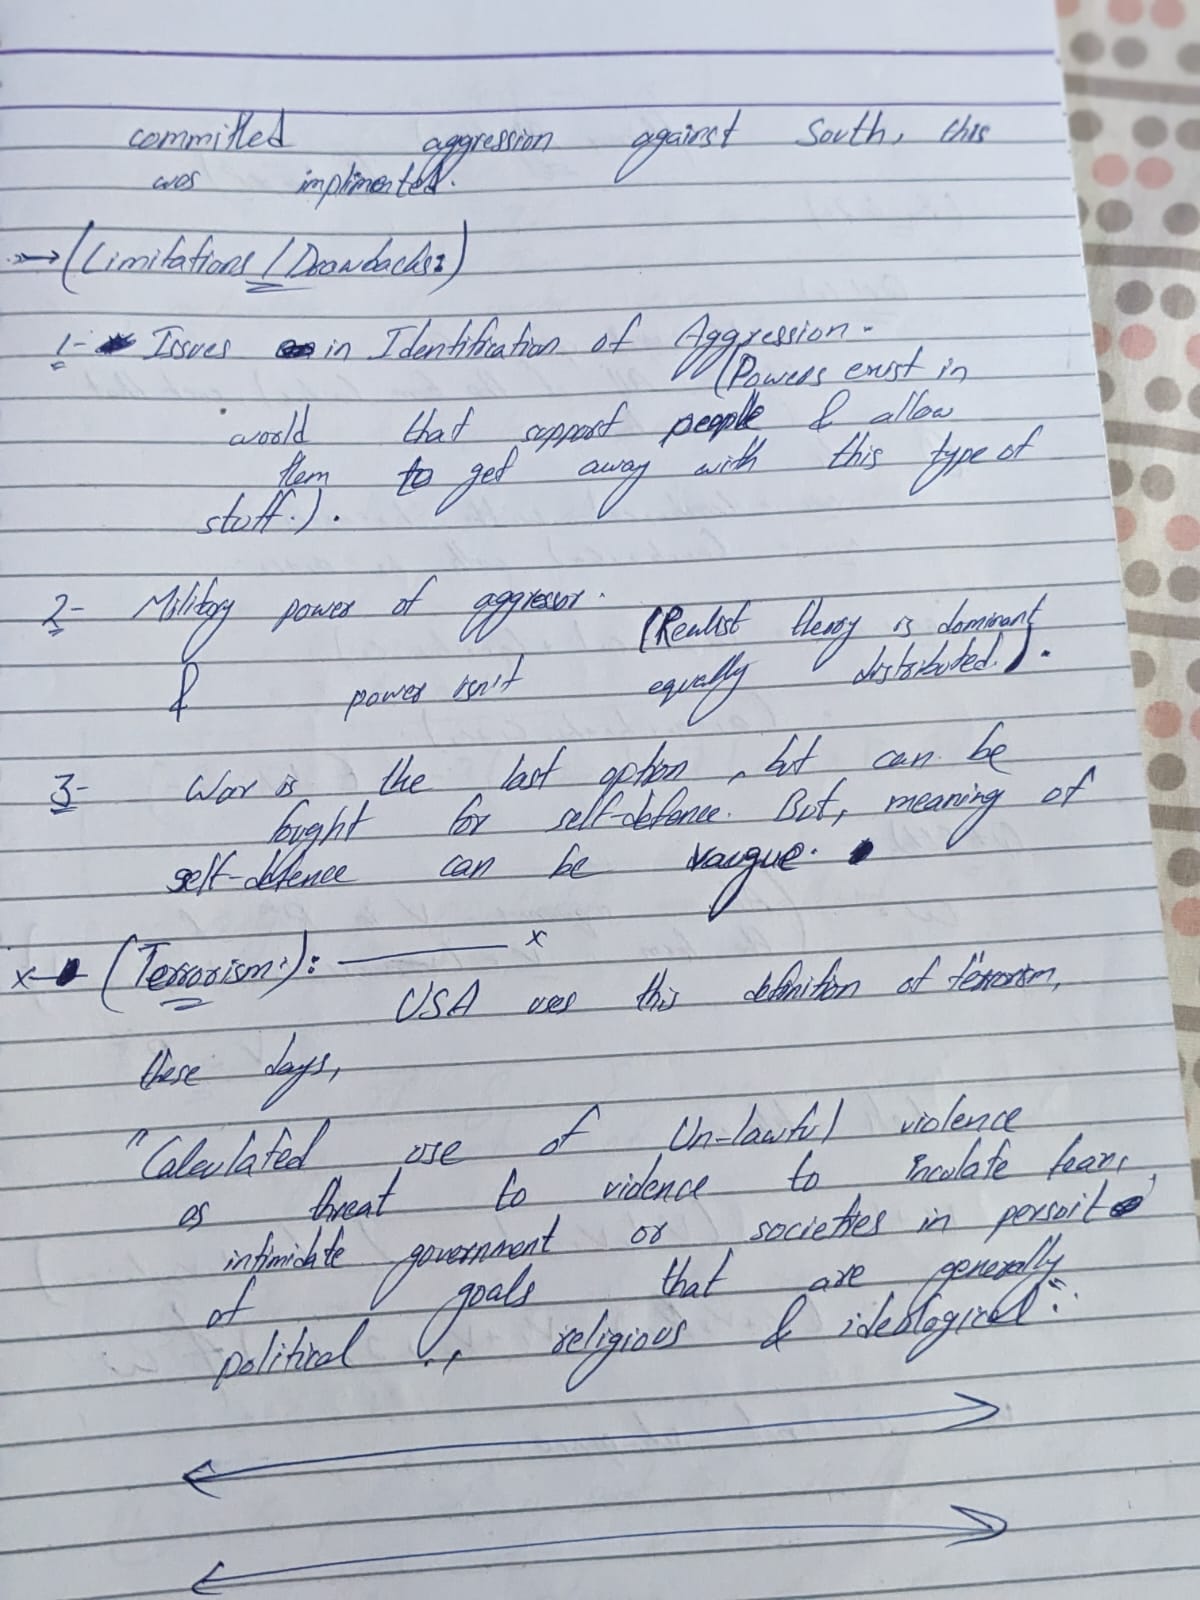 committed aggression against South, this
was implimented.
→ (Limitations / Drawbacks:)
1- Issues in Identification of Aggression.
(Powers exist in
world that support people & allow
them to get away with this type of
stuff.).
2- Military power of aggressor.
(Realist theory is dominant
& power isn't equally distributed.).
3- War is the last option, but can be
fought for self-defence. But, meaning of
self-defence can be vargue.
x (Terrorism:): x
USA uses this definition of terrorism,
these days,
"Calculated use of Un-lawful violence
as threat to vidence to inculate fear,
intimidate government or societies in persuit
of goals that are generally
political, religious & ideological".